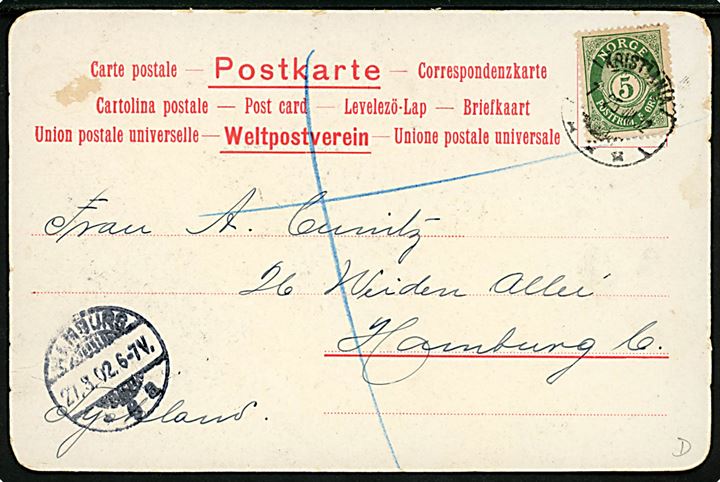 Carte postale — Postkarte — Correspondenzkarte
Cartolina postale — Post card — Levelezö-Lap — Briefkaart
Union postale universelle — Weltpostverein — Unione postale universale
NORGE
5
POSTFRIM. 5 ØRE
KRISTIANIA
Frau A. Cunitz
26 Weiden Allée
Hamburg C.
Tyskland.
HAMBURG
27.3.02.6-7V.
D